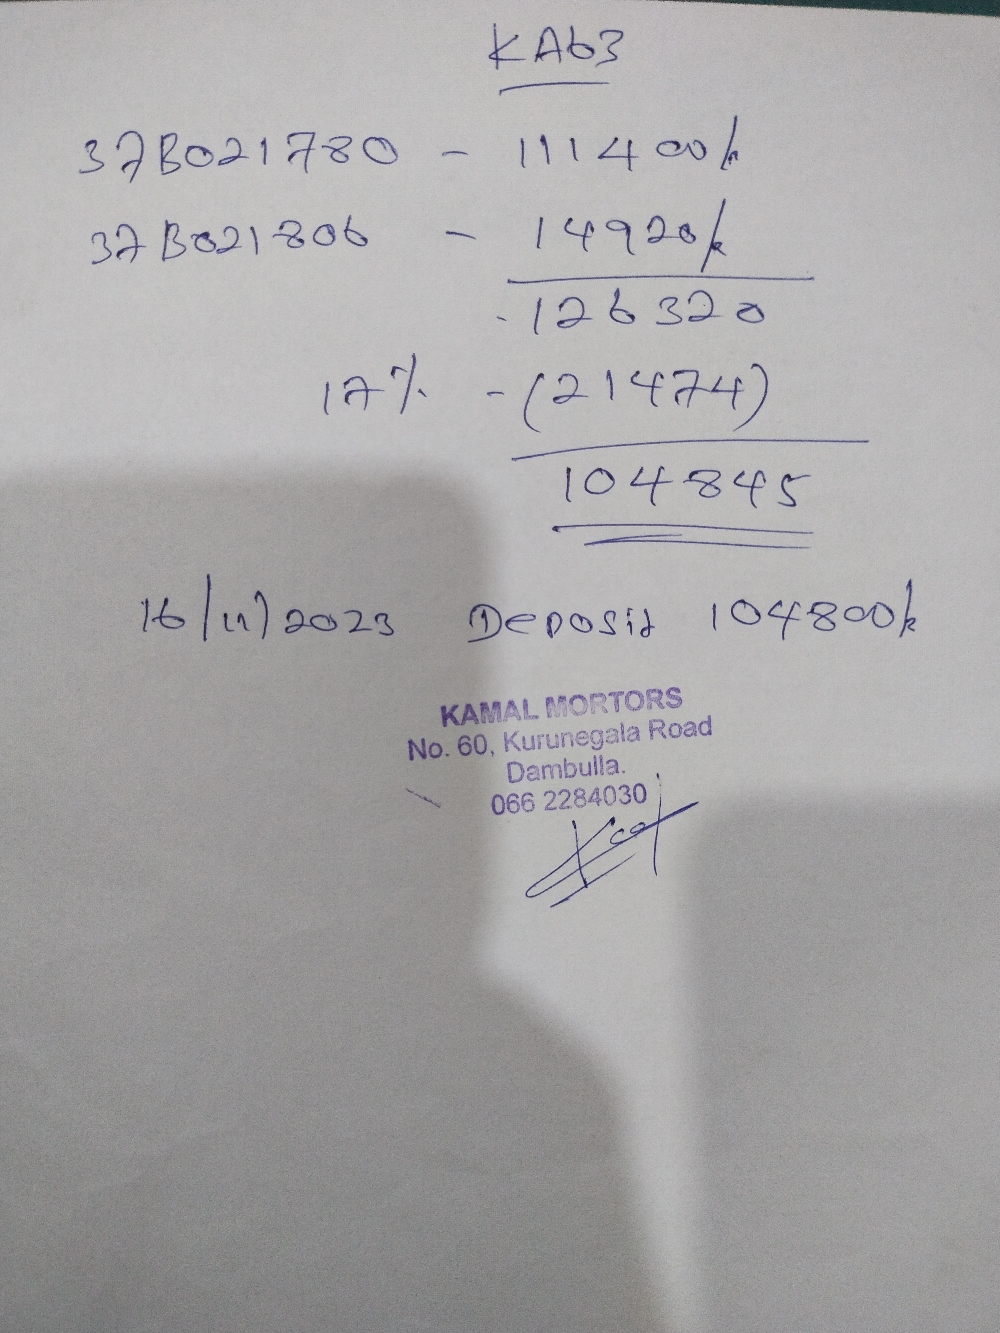 KA63
37B021780 - 111400/-
37B021806 - 14920/-
- 126320
17% - (21474)
104845
16/11/2023 Deposit 104800/-
KAMAL MORTORS
No. 60, Kurunegala Road
Dambulla.
066 2284030